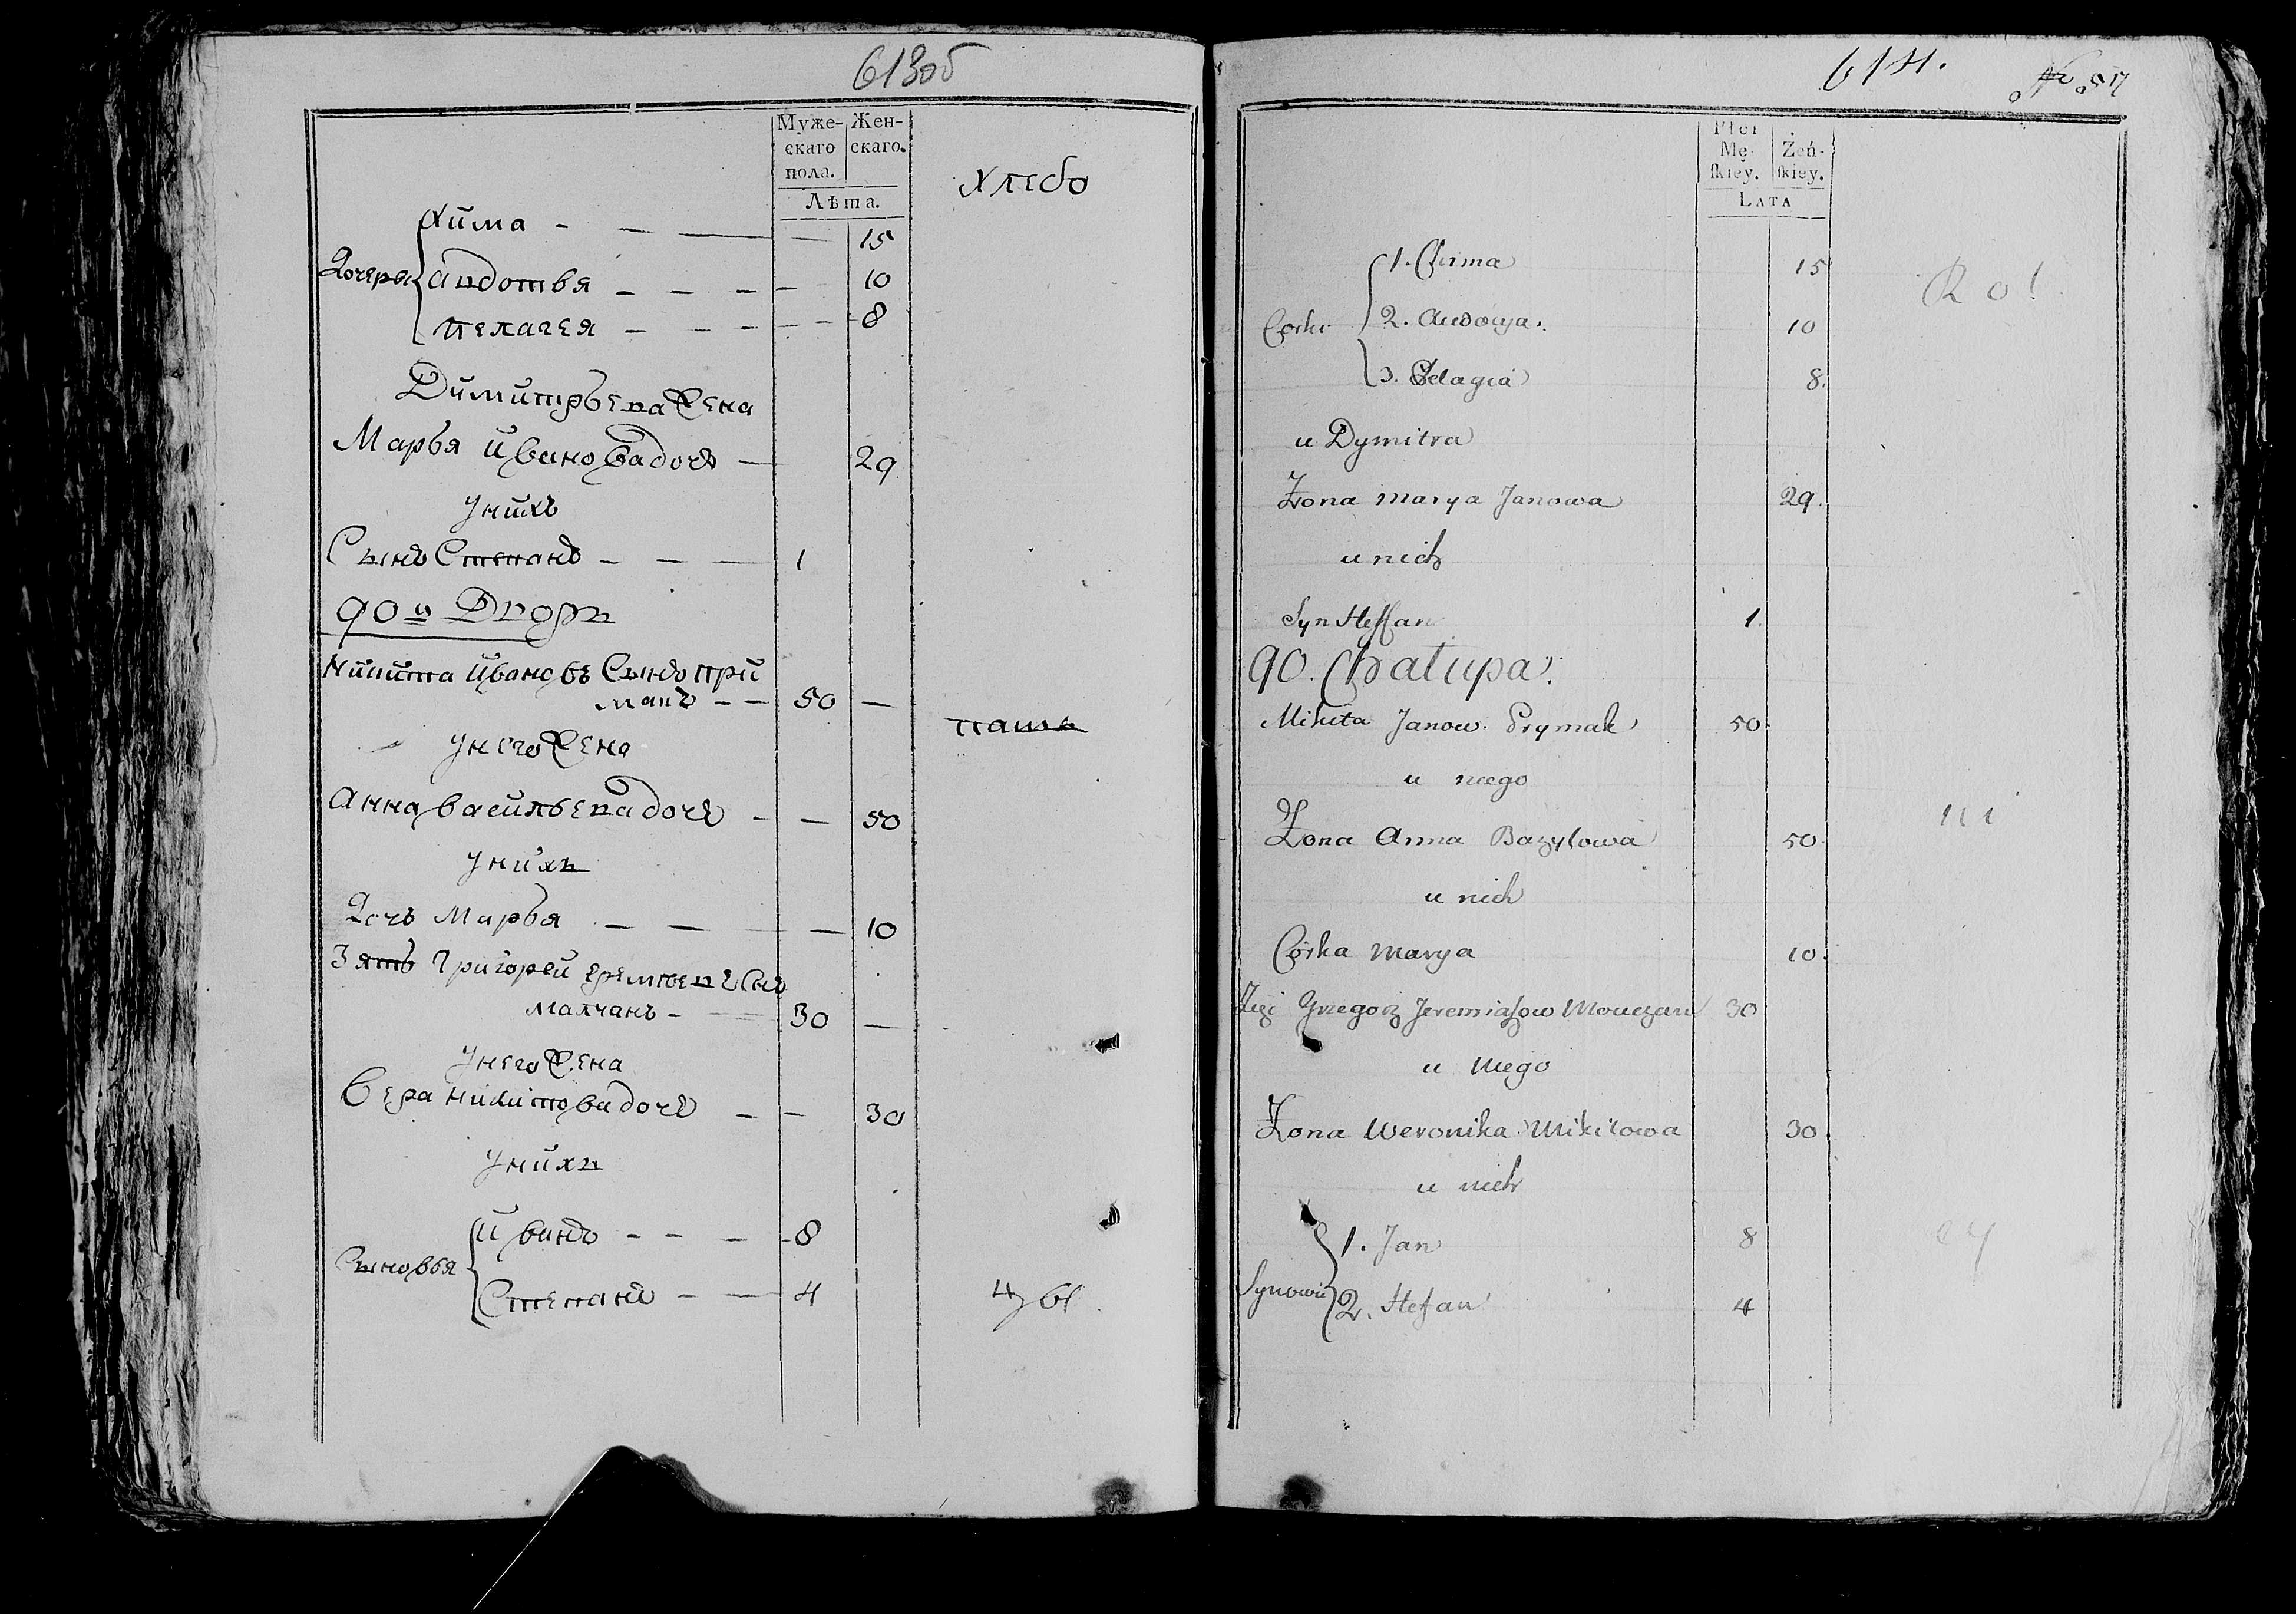 613об
Муже- Жен-
скаго скаго.
пола.
Лѣта.
хлебо
Хима 15
Дочеря Авдотья 10
Пелагея 8
Димитрьева жена
Марья Иванова дочь 29
У нихъ
Сынъ Степанъ 1
90й Дворъ
Никита Ивановъ Сынъ при
макъ 50
паш
У него жена
Анна Васильева дочь 50
У нихъ
Дочь Марья 10
Зять Григорей Еремеевъ Снъ
малчанъ 30
У него жена
Вера Никитова дочь 30
У нихъ
Сыновья Иванъ 8
Степанъ 4
цы
614.
Płci
Mę- Żeń-
skiey. skiey.
LATA
Rol
Corki 1. Chima 15
2. Audocya. 10
3. Pelagia 8.
u Dymitra
Żona Marya Janowa 29.
u nich
Syn Steffan 1.
90. Chałupa.
Mikita Janow. Prymak 50.
u niego
ni
Żona Anna Bazylowa 50.
u nich
Córka Marya 10.
Zięć Grzegorz Jeremiaszow Mouczan 30
u niego
Żona Weronika Mikitowa 30.
u nich
Synowie 1. Jan 8
2. Stefan 4
cy